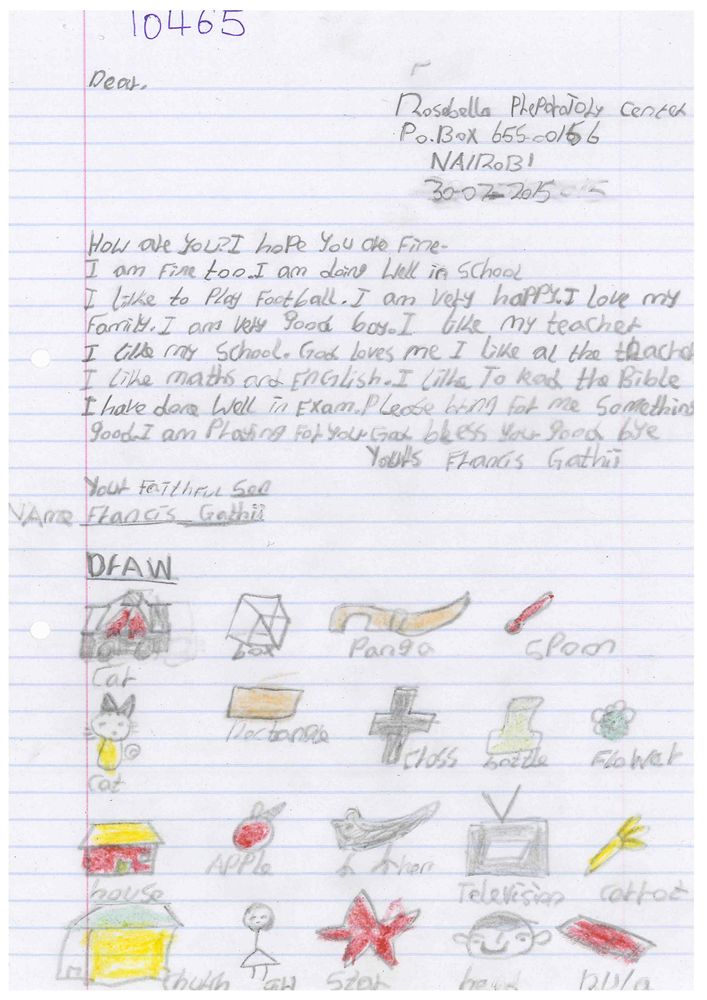 10465
Dear.
Rosebella Preparatory Center
P.o.Box 655-00156
NAIROBI
30-07-2015
How are you? I hope you are Fine.
I am Fine too. I am doing Well in School
I like to Play Football. I am very happy. I love my
Family. I am very good boy. I like my teacher
I like my School. God loves me I like al the teacher
I like maths and English. I like To Read the Bible
I have done Well in Exam. Please bring For me Somethin
good. I am Praying For your God bless your good bye
Yours Francis Gathii
Your Faithful Son
NAme Francis Gathii
DrAW
box Panga SPoon
Car
Rectangle Cross bottle Flower
Cat
house APPle Television carrot
Star head